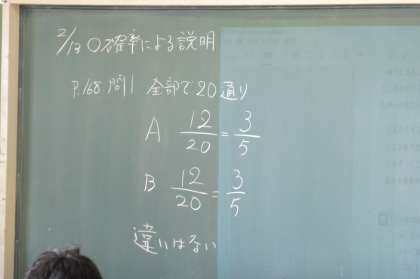 2/13 ○確率による説明
P.168 問1 全部で20通り
A 12/20 = 3/5
B 12/20 = 3/5
違いはない